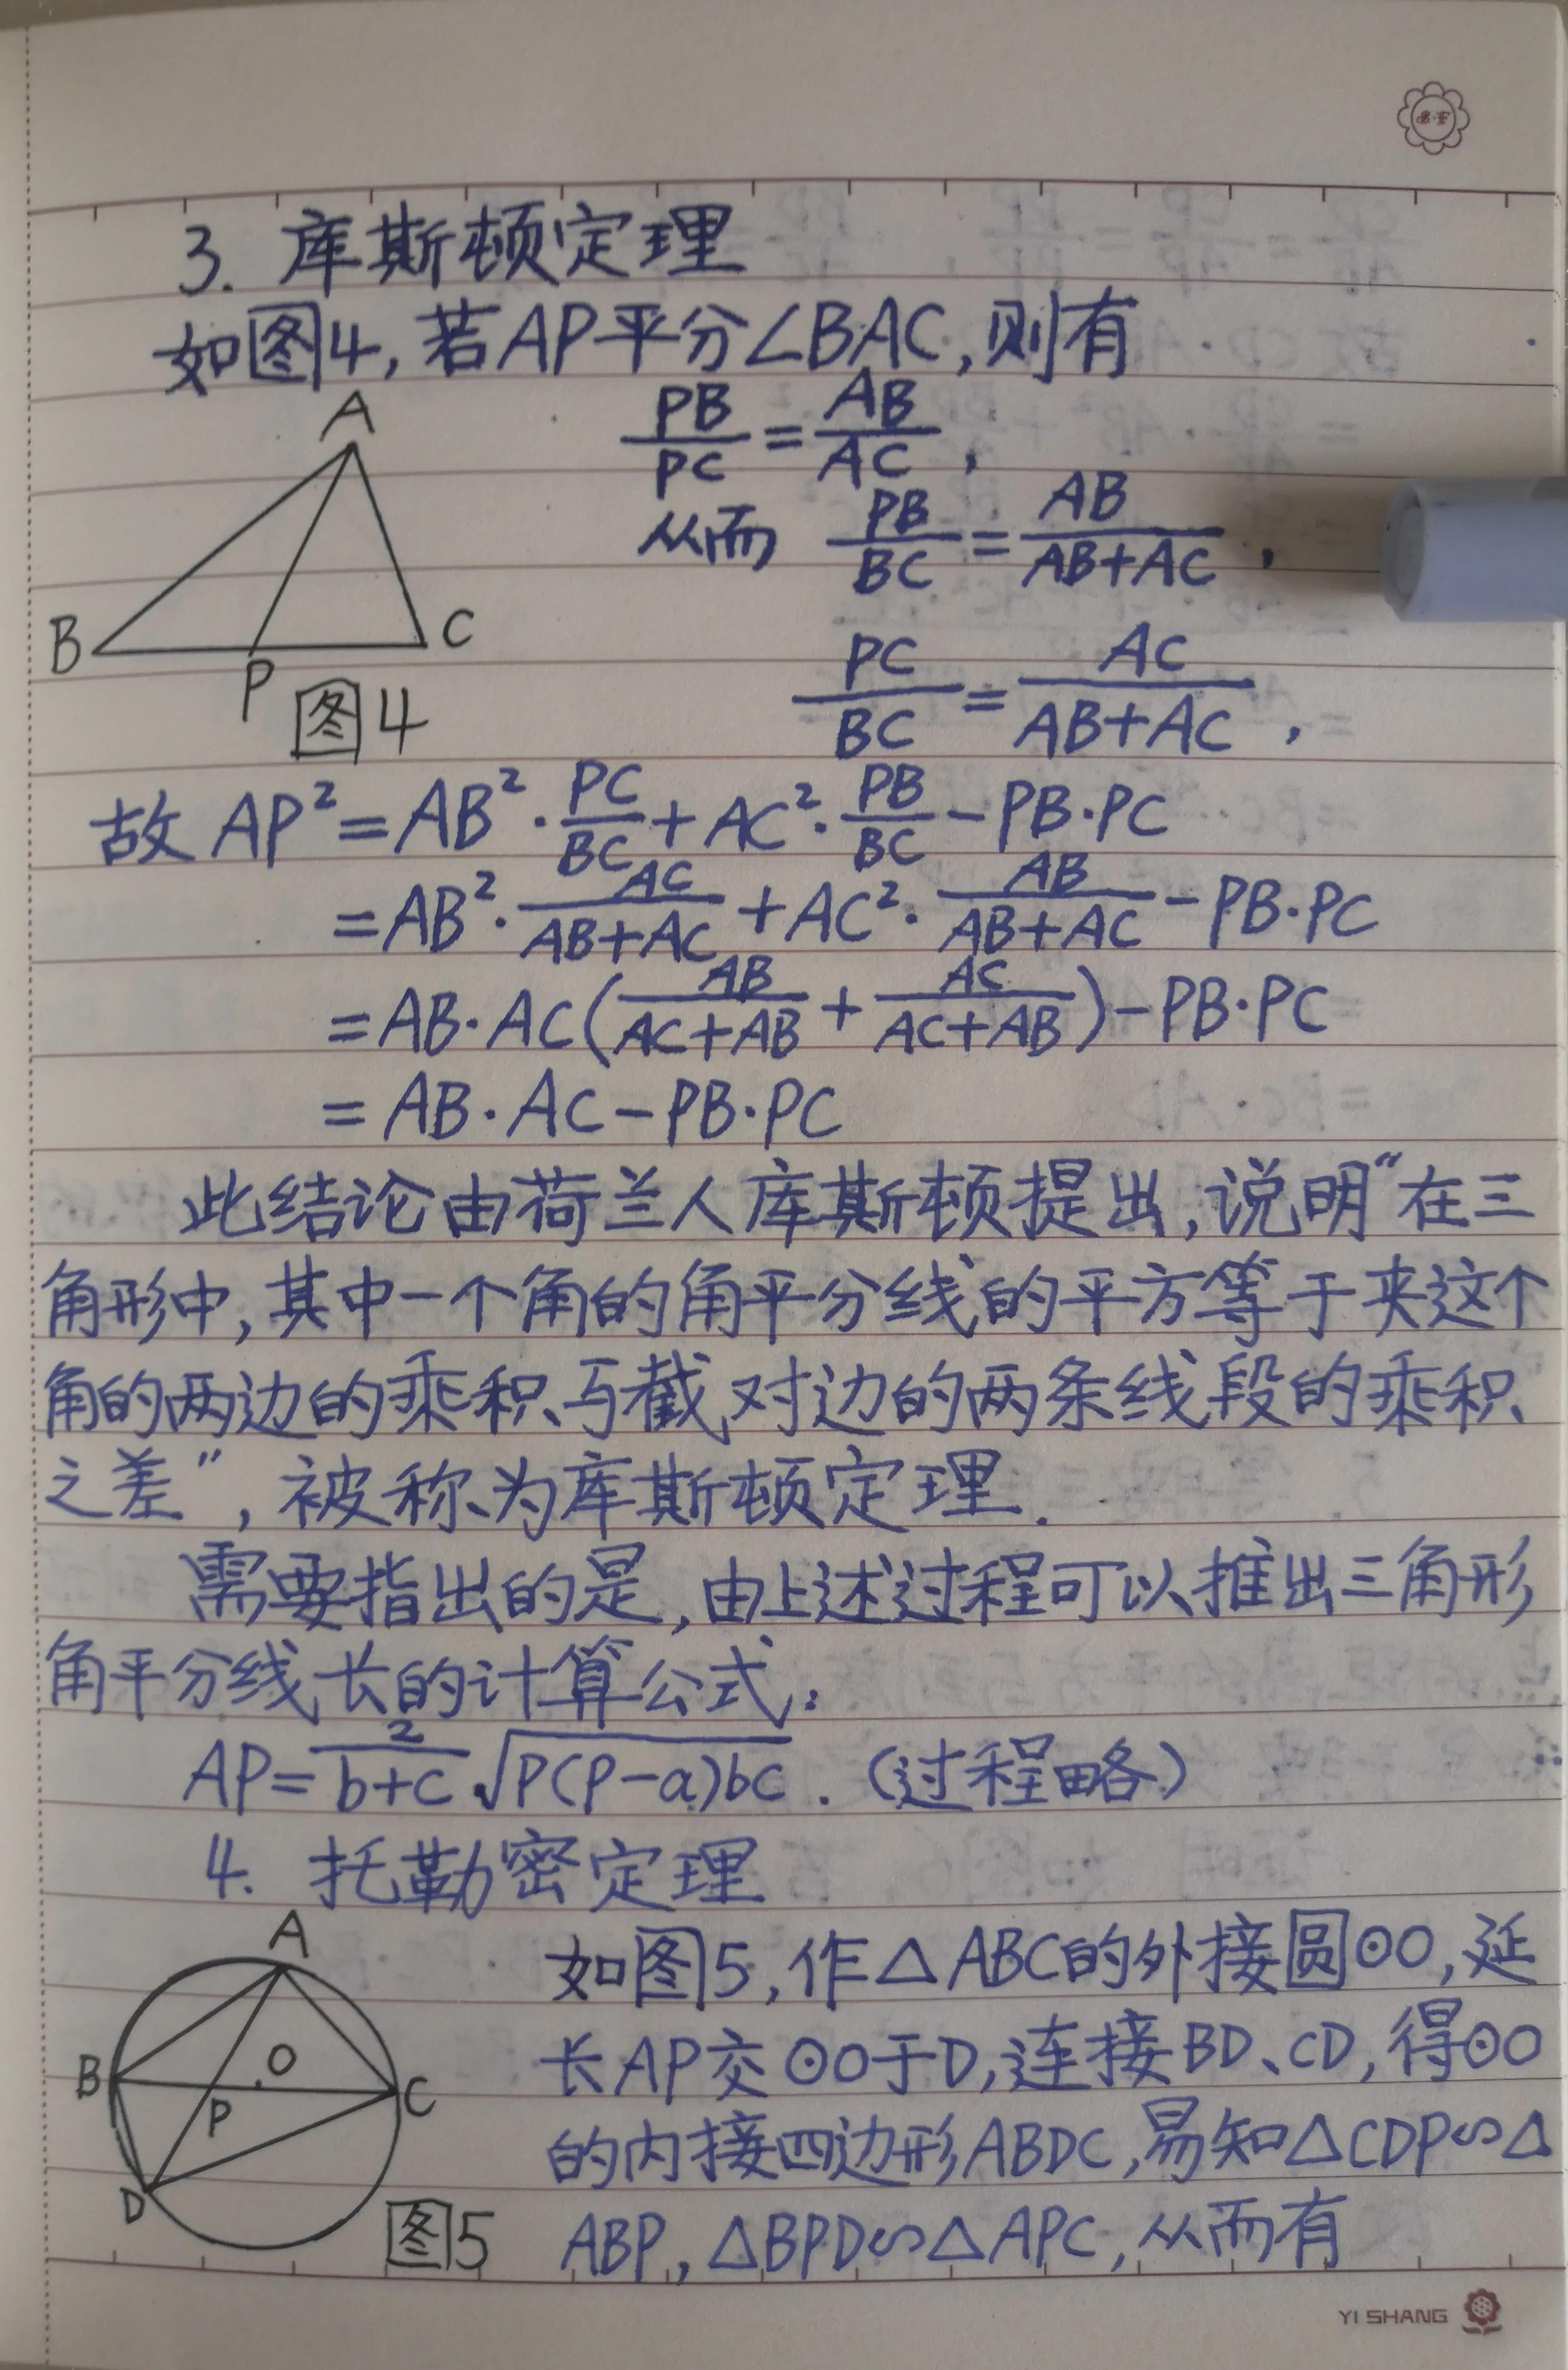 3. 库斯顿定理
如图4,若AP平分∠BAC,则有
PB/PC=AB/AC,
从而 PB/BC=AB/(AB+AC),
PC/BC=AC/(AB+AC),
A
B
P
C
图4
故AP²=AB²·PC/BC+AC²·PB/BC-PB·PC
=AB²·AC/(AB+AC)+AC²·AB/(AB+AC)-PB·PC
=AB·AC(AB/(AC+AB)+AC/(AC+AB))-PB·PC
=AB·AC-PB·PC
此结论由荷兰人库斯顿提出,说明“在三
角形中,其中一个角的角平分线的平方等于夹这个
角的两边的乘积与截对边的两条线段的乘积
之差”,被称为库斯顿定理.
需要指出的是,由上述过程可以推出三角形
角平分线长的计算公式:
AP=2/(b+c)√(P(P-a)bc).(过程略)
4. 托勒密定理
如图5,作△ABC的外接圆⊙O,延
长AP交⊙O于D,连接BD、CD,得⊙O
的内接四边形ABDC,易知△CDP∽△
ABP,△BPD∽△APC,从而有
A
B
O
P
C
D
图5
YI SHANG